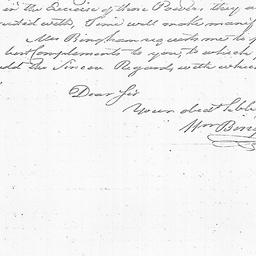 in the Exercise of those Powers, they a
rusted with, Time will make manif
Mrs Bingham requests me to p
best Complements to you, to which
add the Sincere Regards, with whic
Dear Sir
Your obedt
Wm Bing